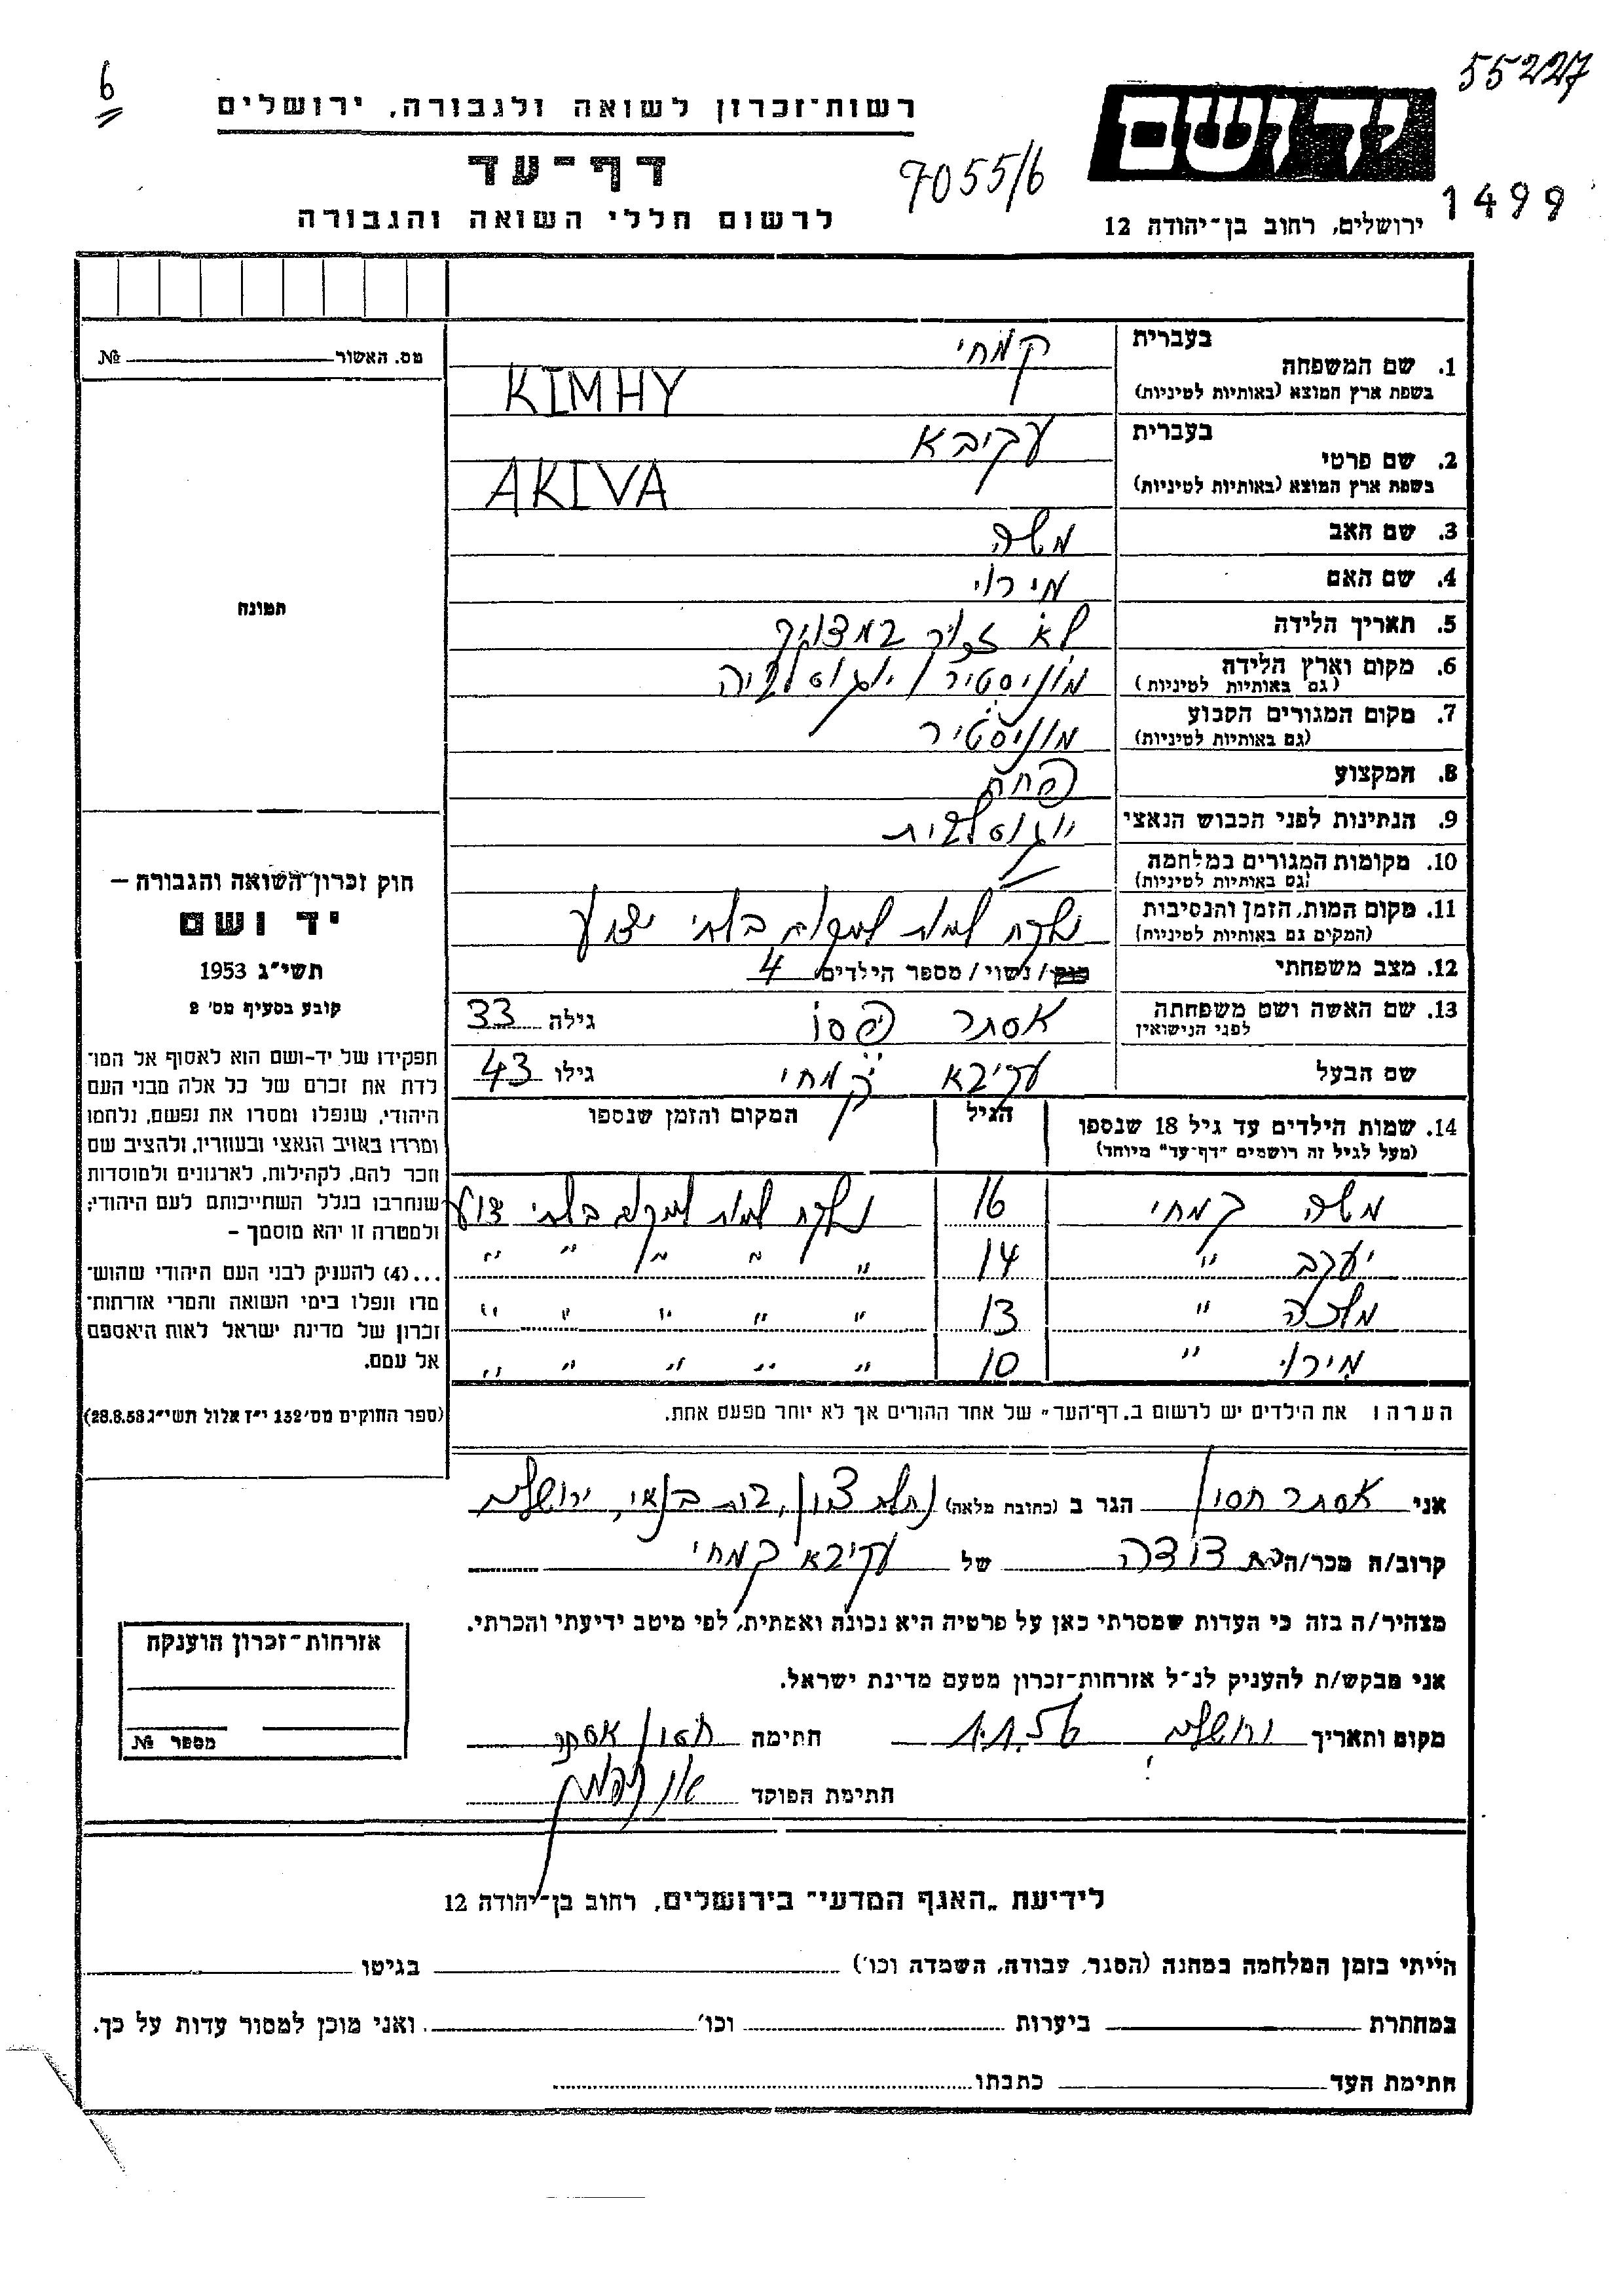 55227
6
רשות־זכרון לשואה ולגבורה, ירושלים
יד ושם
דף־עד
7055/6
1499
לרשום חללי השואה והגבורה
ירושלים, רחוב בן־יהודה 12
מס. האשור № 
בעברית קמחי
1. שם המשפחה
בשפת ארץ המוצא (באותיות לטיניות) KIMHY
בעברית עקיבא
2. שם פרטי
בשפת ארץ המוצא (באותיות לטיניות) AKIVA
3. שם האב משה
4. שם האם מירו
תמונה
5. תאריך הלידה לא זכור במדויק
6. מקום וארץ הלידה מוניסטיר / יוגוסלביה
(גם באותיות לטיניות)
7. מקום המגורים הקבוע מוניסטיר
(גם באותיות לטיניות)
8. המקצוע פחח
9. הנתינות לפני הכבוש הנאצי יוגוסלבית
10. מקומות המגורים במלחמה
(גם באותיות לטיניות)
11. מקום המות, הזמן והנסיבות נלקח למות למקום בלתי ידוע
(המקום גם באותיות לטיניות)
12. מצב משפחתי רווק / נשוי / מספר הילדים 4
13. שם האשה ושם משפחתה אסתר פסו גילה 33
לפני הנישואין
שם הבעל עקיבא קמחי גילו 43
14. שמות הילדים עד גיל 18 שנספו הגיל המקום והזמן שנספו
(מעל לגיל זה רושמים "דף־עד" מיוחד)
משה קמחי 16 נלקח למות למקום בלתי ידוע
יעקב " 14 " " " " "
מלכה " 13 " " " " "
מירו " 10 " " " " "
הערה: את הילדים יש לרשום ב„דף־העד" של אחד ההורים אך לא יותר מפעם אחת.
חוק זכרון השואה והגבורה –
יד ושם
תשי"ג 1953
קובע בסעיף מס' 2
תפקידו של יד־ושם הוא לאסוף אל המו־
לדת את זכרם של כל אלה מבני העם
היהודי, שנפלו ומסרו את נפשם, נלחמו
ומרדו באויב הנאצי ובעוזריו, ולהציב שם
וזכר להם, לקהילות, לארגונים ולמוסדות
שנחרבו בגלל השתייכותם לעם היהודי;
ולמטרה זו יהא מוסמך –
...(4) להעניק לבני העם היהודי שהוש־
מדו ונפלו בימי השואה והמרי אזרחות־
זכרון של מדינת ישראל לאות היאספם
אל עמם.
(ספר החוקים מס' 132 י"ז אלול תשי"ג 28.8.53)
אני אסתר חסון הגר ב (כתובת מלאה) נחלת ציון, ירושלים
קרוב/ה מכר/ה בת דודה של עקיבא קמחי
מצהיר/ה בזה כי העדות שמסרתי כאן על פרטיה היא נכונה ואמתית, לפי מיטב ידיעתי והכרתי.
אני מבקש/ת להעניק לנ"ל אזרחות־זכרון מטעם מדינת ישראל.
מקום ותאריך ירושלים חתימה חסון אסתר
חתימת הפוקד
אזרחות־זכרון הוענקה
מספר №
לידיעת „האגף המדעי" בירושלים, רחוב בן־יהודה 12
הייתי בזמן המלחמה במחנה (הסגר, עבודה, השמדה וכו') בגיטו
במחתרת ביערות וכו' ואני מוכן למסור עדות על כך.
חתימת העד כתבתו